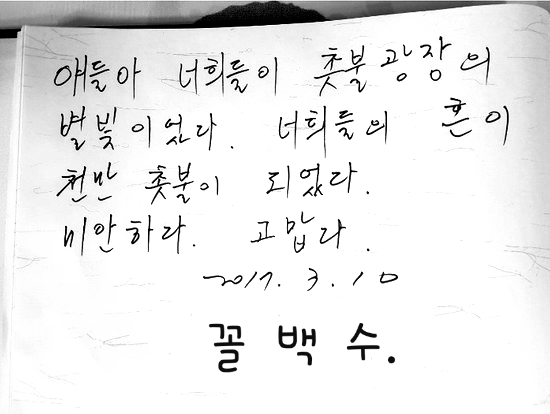 얘들아 너희들이 촛불광장의
별빛이었다. 너희들의 혼이
천만 촛불이 되었다.
미안하다. 고맙다.
2017. 3. 10
꼴 백 수.